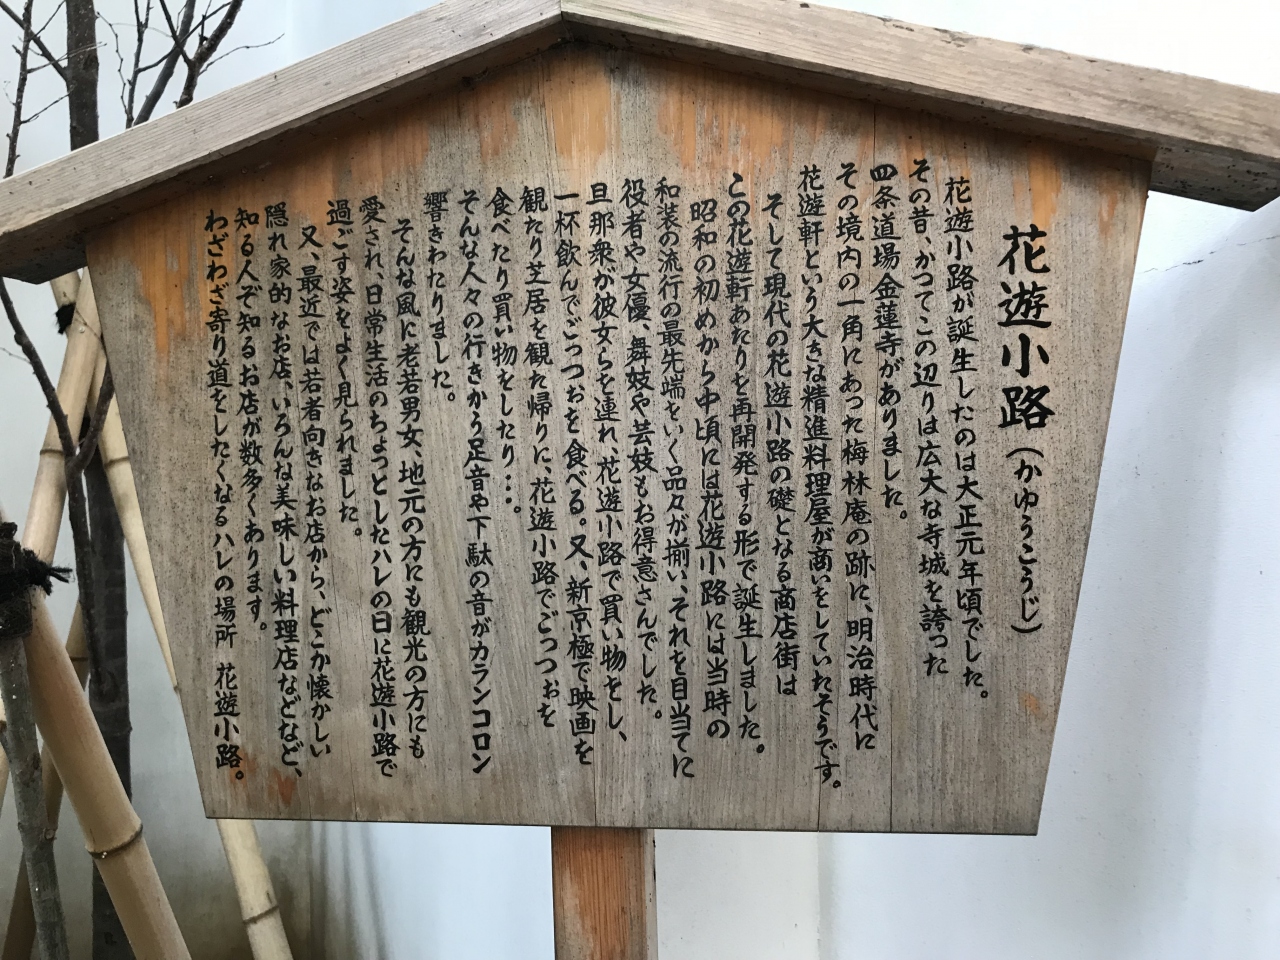 花遊小路(かゆうこうじ)
花遊小路が誕生したのは大正元年頃でした。
その昔、かつてこの辺りは広大な寺城を誇った
四条道場金蓮寺がありました。
その境内の一角にあった梅林庵の跡に、明治時代に
花遊軒という大きな精進料理屋が商いをしていたそうです。
そして現代の花遊小路の礎となる商店街は
この花遊軒あたりを再開発する形で誕生しました。
昭和の初めから中頃には花遊小路には当時の
和装の流行の最先端をいく品々が揃い、それを目当てに
役者や女優、舞妓や芸妓もお得意さんでした。
旦那衆が彼女らを連れ、花遊小路で買い物をし、
一杯飲んでごっつぉを食べる。又、新京極で映画を
観たり芝居を観た帰りに、花遊小路でごっつぉを
食べたり買い物をしたり・・・。
そんな人々の行きかう足音や下駄の音がカランコロン
響きわたりました。
そんな風に老若男女、地元の方にも観光の方にも
愛され、日常生活のちょっとしたハレの日に花遊小路で
過ごす姿をよく見られました。
又、最近では若者向きなお店から、どこか懐かしい
隠れ家的なお店、いろんな美味しい料理店などなど、
知る人ぞ知るお店が数多くあります。
わざわざ寄り道をしたくなるハレの場所 花遊小路。